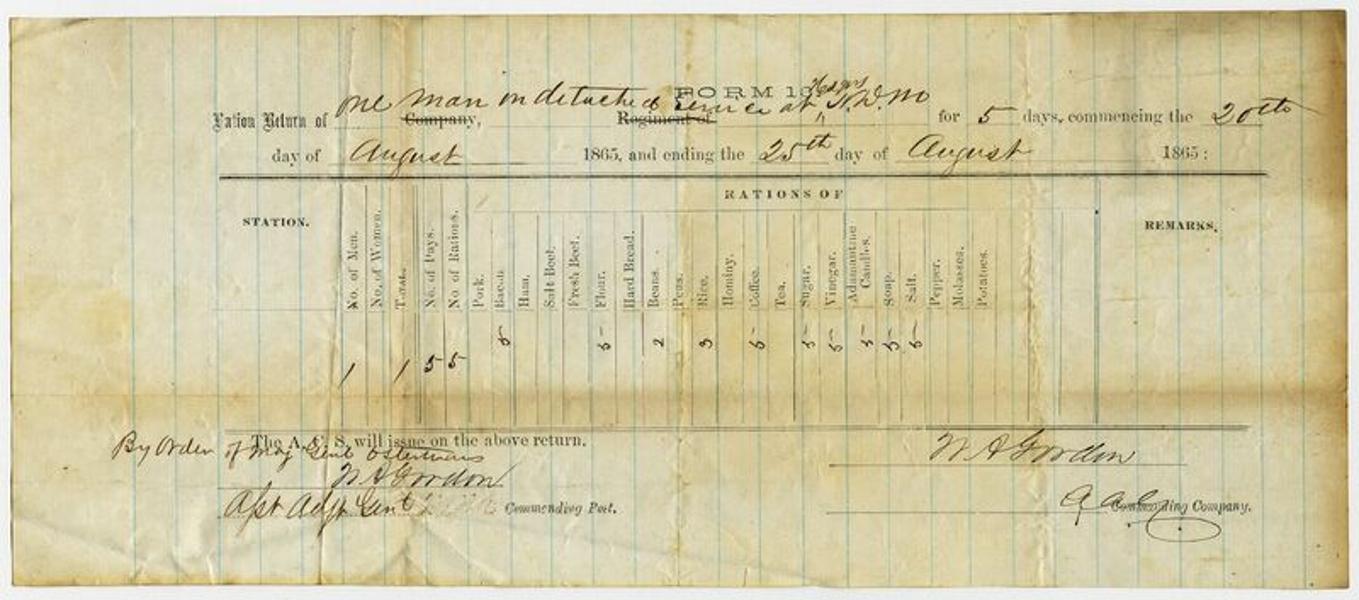 FORM 13
Hdqrs
Ration Return of one man on detached service at N.D.M
Company, Regiment of for 5 days, commencing the 20th
day of August 1865, and ending the 25th day of August 1865:
RATIONS OF
STATION. No. of Men. No. of Women. Total. No. of Days. No. of Rations. Pork. Bacon. Ham. Salt Beef. Fresh Beef. Flour. Hard Bread. Beans. Peas. Rice. Hominy. Coffee. Tea. Sugar. Vinegar. Adamantine Candles. Soap. Salt. Pepper. Molasses. Potatoes. REMARKS.
1 1 5 5 5 5 2 3 5 5 5 5 5 5
The A. C. S. will issue on the above return.
By Order of Maj Genl Osterhaus
W A Gordon
W A Gordon
Asst Adjt Genl Commending Post.
A A G Commanding Company.